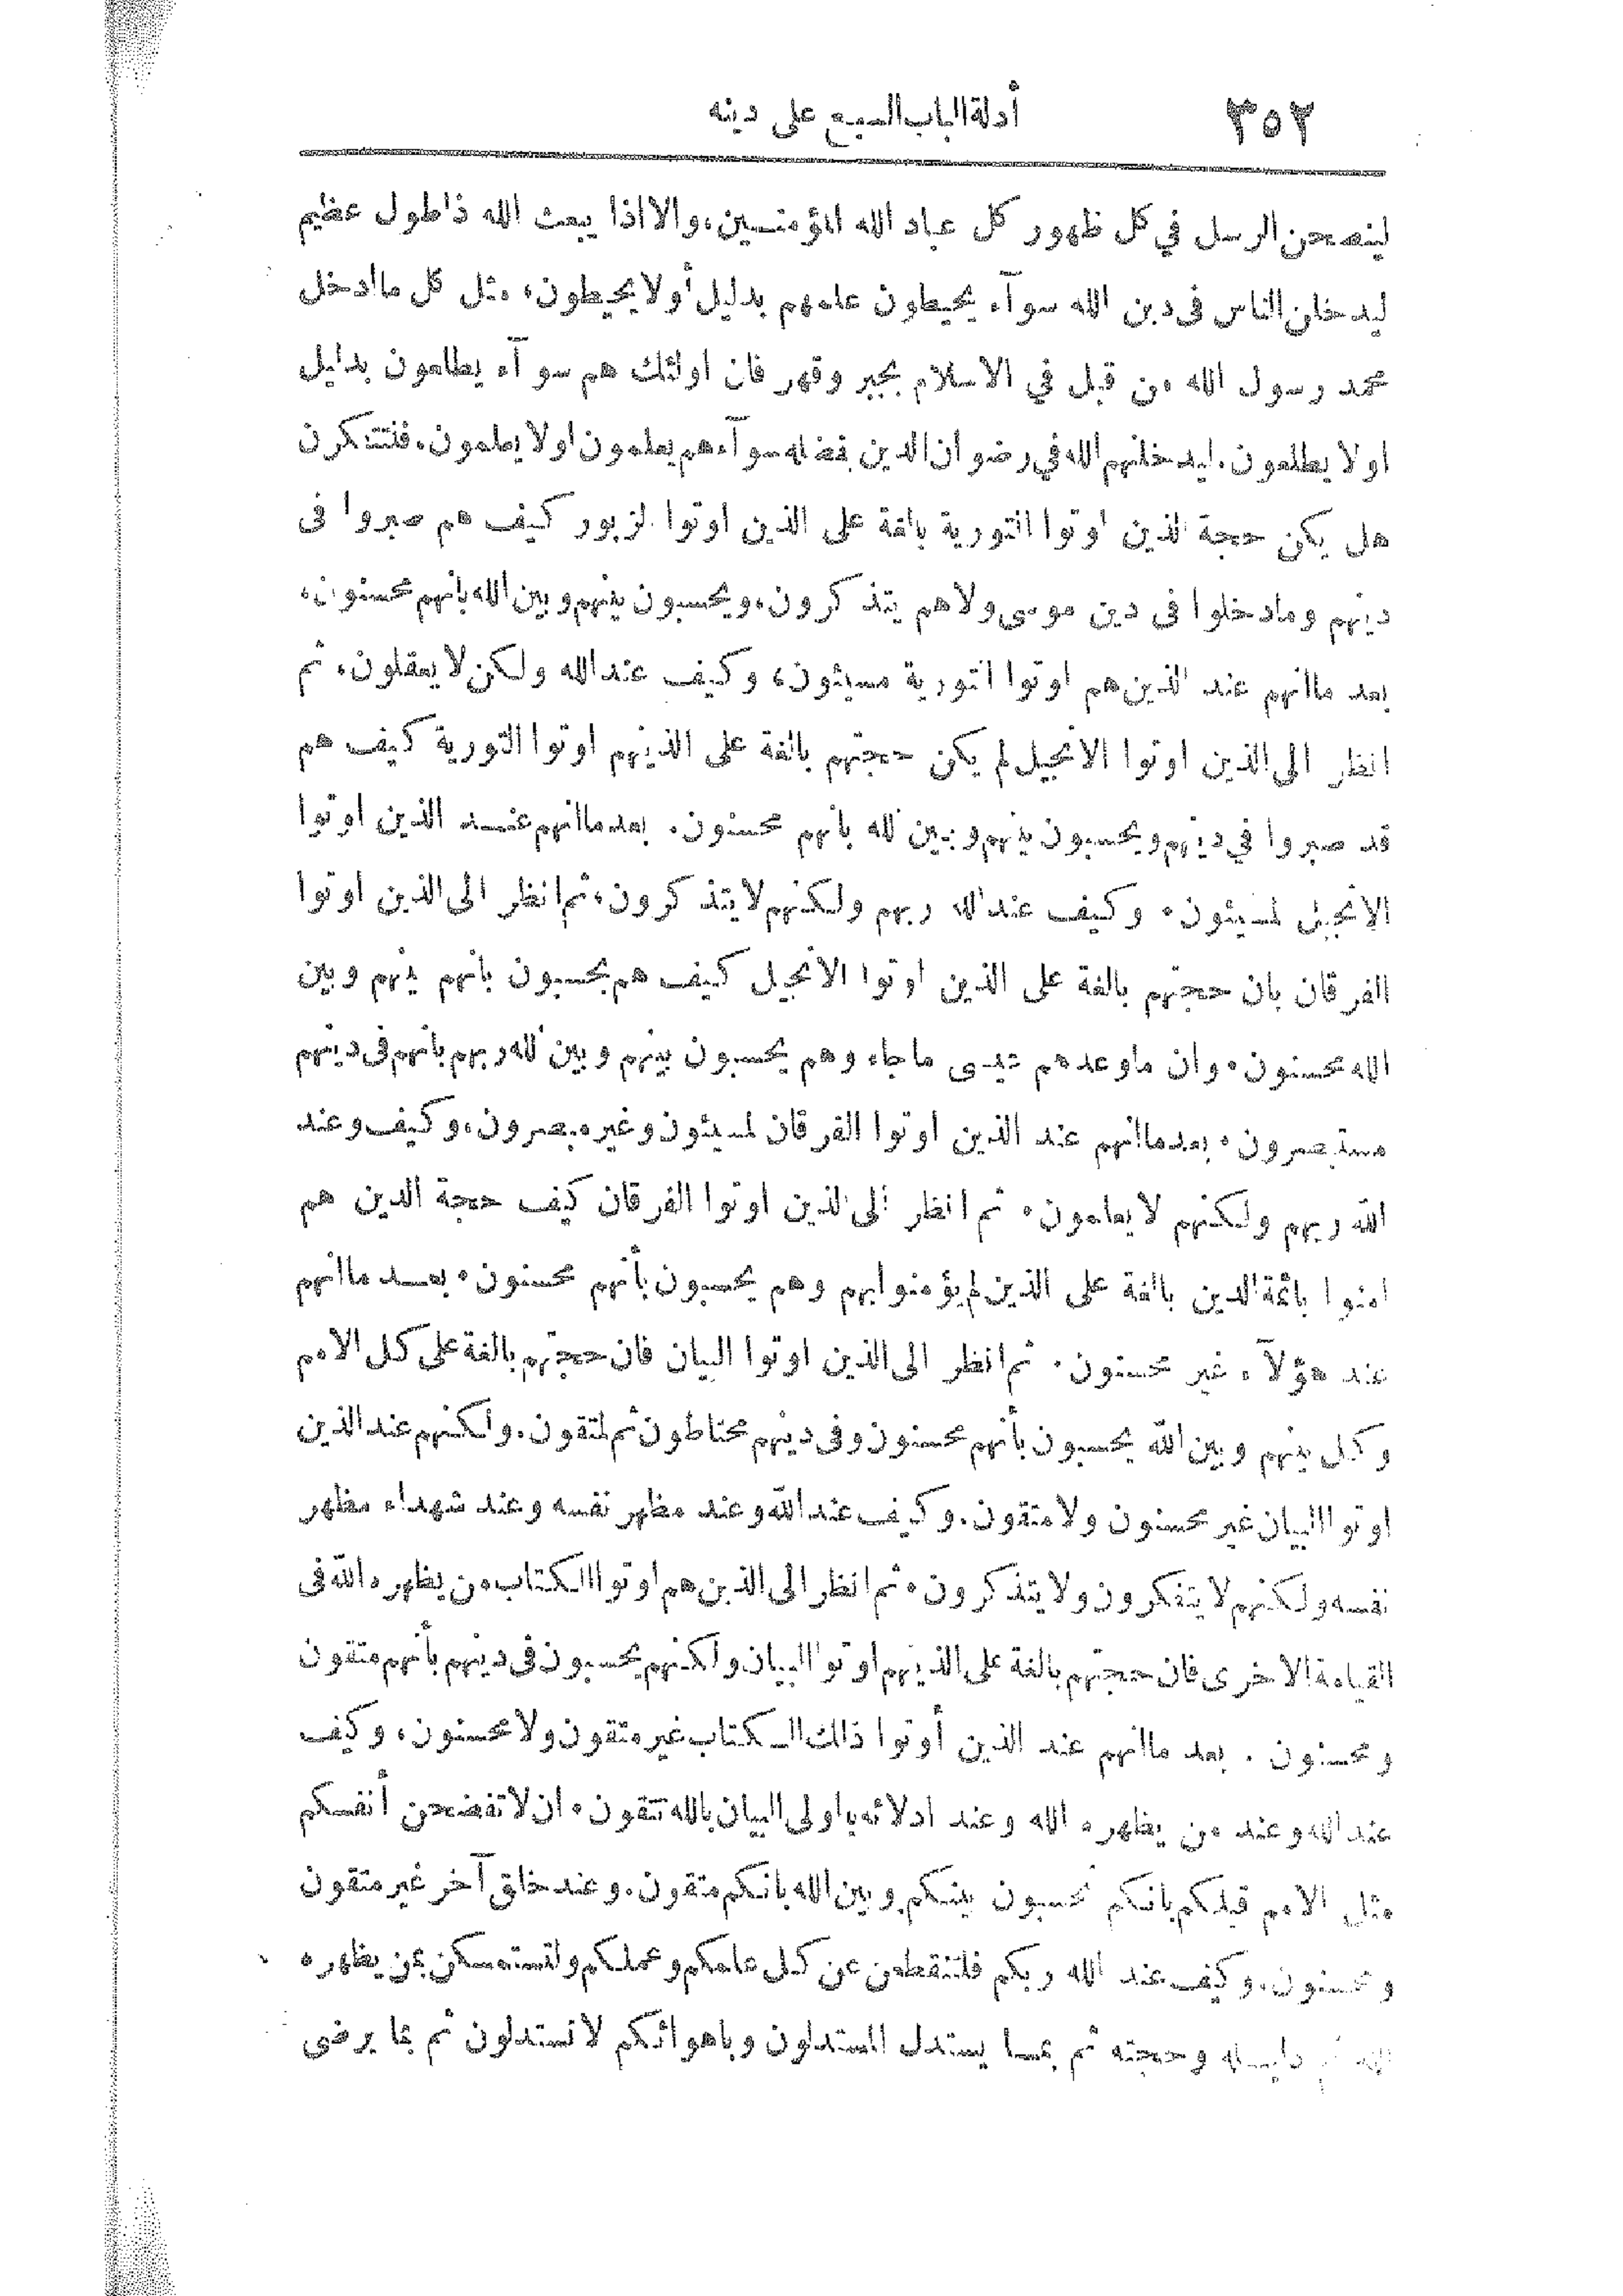 ٣٥٢
أدلة الباب السبع على دينه
لينصحن الرسل في كل ظهور كل عباد الله المؤمنسين، والا اذا يبعث الله ذا طول عظيم
ليدخلن الناس فى دين الله سوآء يحيطون علمهم بدليل أو لا يحيطون، مثل كل ما ادخل
محمد رسول الله من قبل في الاسلام بجبر وقهر فان اولئك هم سوآء يطلعون بدليل
او لا يطلعون. ليدخلنهم الله في رضوان الدين بفضله سوآء هم يعلمون او لا يعلمون، فلتتذكرن
هل يكن حجة الذين اوتوا التورية بالغة على الذين اوتوا الزبور كيف هم صبروا فى
دينهم وما دخلوا فى دين موسى ولا هم يتذكرون، ويحسبون بينهم وبين الله بانهم محسنون،
بعد ما انهم عند الذين هم اوتوا التورية مسيئون، وكيف عند الله ولكن لا يعقلون، ثم
انظر الى الذين اوتوا الانجيل لم يكن حجتهم بالغة على الذينهم اوتوا التورية كيف هم
قد صبروا في دينهم ويحسبون بينهم وبين لله بانهم محسنون. بعد ما انهم عنسد الذين اوتوا
الانجيل لمسيئون. وكيف عند الله ربهم ولكنهم لا يتذكرون، ثم انظر الى الذين اوتوا
الفرقان بان حجتهم بالغة على الذين اوتوا الانجيل كيف هم يحسبون بانهم بينهم وبين
الله محسنون. وان ما وعدهم عيسى ما جاء وهم يحسبون بينهم وبين لله ربهم بانهم فى دينهم
مستبصرون. بعد ما انهم عند الذين اوتوا الفرقان لمسيئون وغير مبصرون، وكيف وعند
الله ربهم ولكنهم لا يعلمون. ثم انظر الى الذين اوتوا الفرقان كيف حجة الدين هم
امنوا بائمة الدين بالغة على الذين لم يؤمنوا بهم وهم يحسبون بأنهم محسنون. بعسد ما انهم
عند هؤلآء غير محسنون. ثم انظر الى الذين اوتوا البيان فان حجتهم بالغة على كل الامم
وكل بينهم وبين الله يحسبون بأنهم محسنون وفى دينهم محتاطون ثم لمتقون. ولكنهم عند الذين
اوتوا البيان غير محسنون ولا متقون. وكيف عند الله وعند مظهر نفسه وعند شهداء مظهر
نفسه ولكنهم لا يتفكرون ولا يتذكرون. ثم انظر الى الذين هم اوتوا الكتاب من يظهره الله فى
القيامة الاخرى فان حجتهم بالغة على الذينهم اوتوا البيان ولكنهم يحسبون فى دينهم بأنهم متقون
ومحسنون. بعد ما انهم عند الذين أوتوا ذلك الكتاب غير متقون ولا محسنون، وكيف
عند الله وعند من يظهره الله وعند ادلائه يا اولى البيان بالله تتقون. ان لا تفضحن أنفسكم
مثل الامم قبلكم بانكم تحسبون بينكم وبين الله بانكم متقون. وعند خلق آخر غير متقون
ومحسنون. وكيف عند الله ربكم فلتنقطعن عن كل علمكم وعملكم ولتستمسكن بمن يظهره
الله وحجته ثم بمسا يستدل المستدلون وباهوائكم لا تستدلون ثم بما يرضى